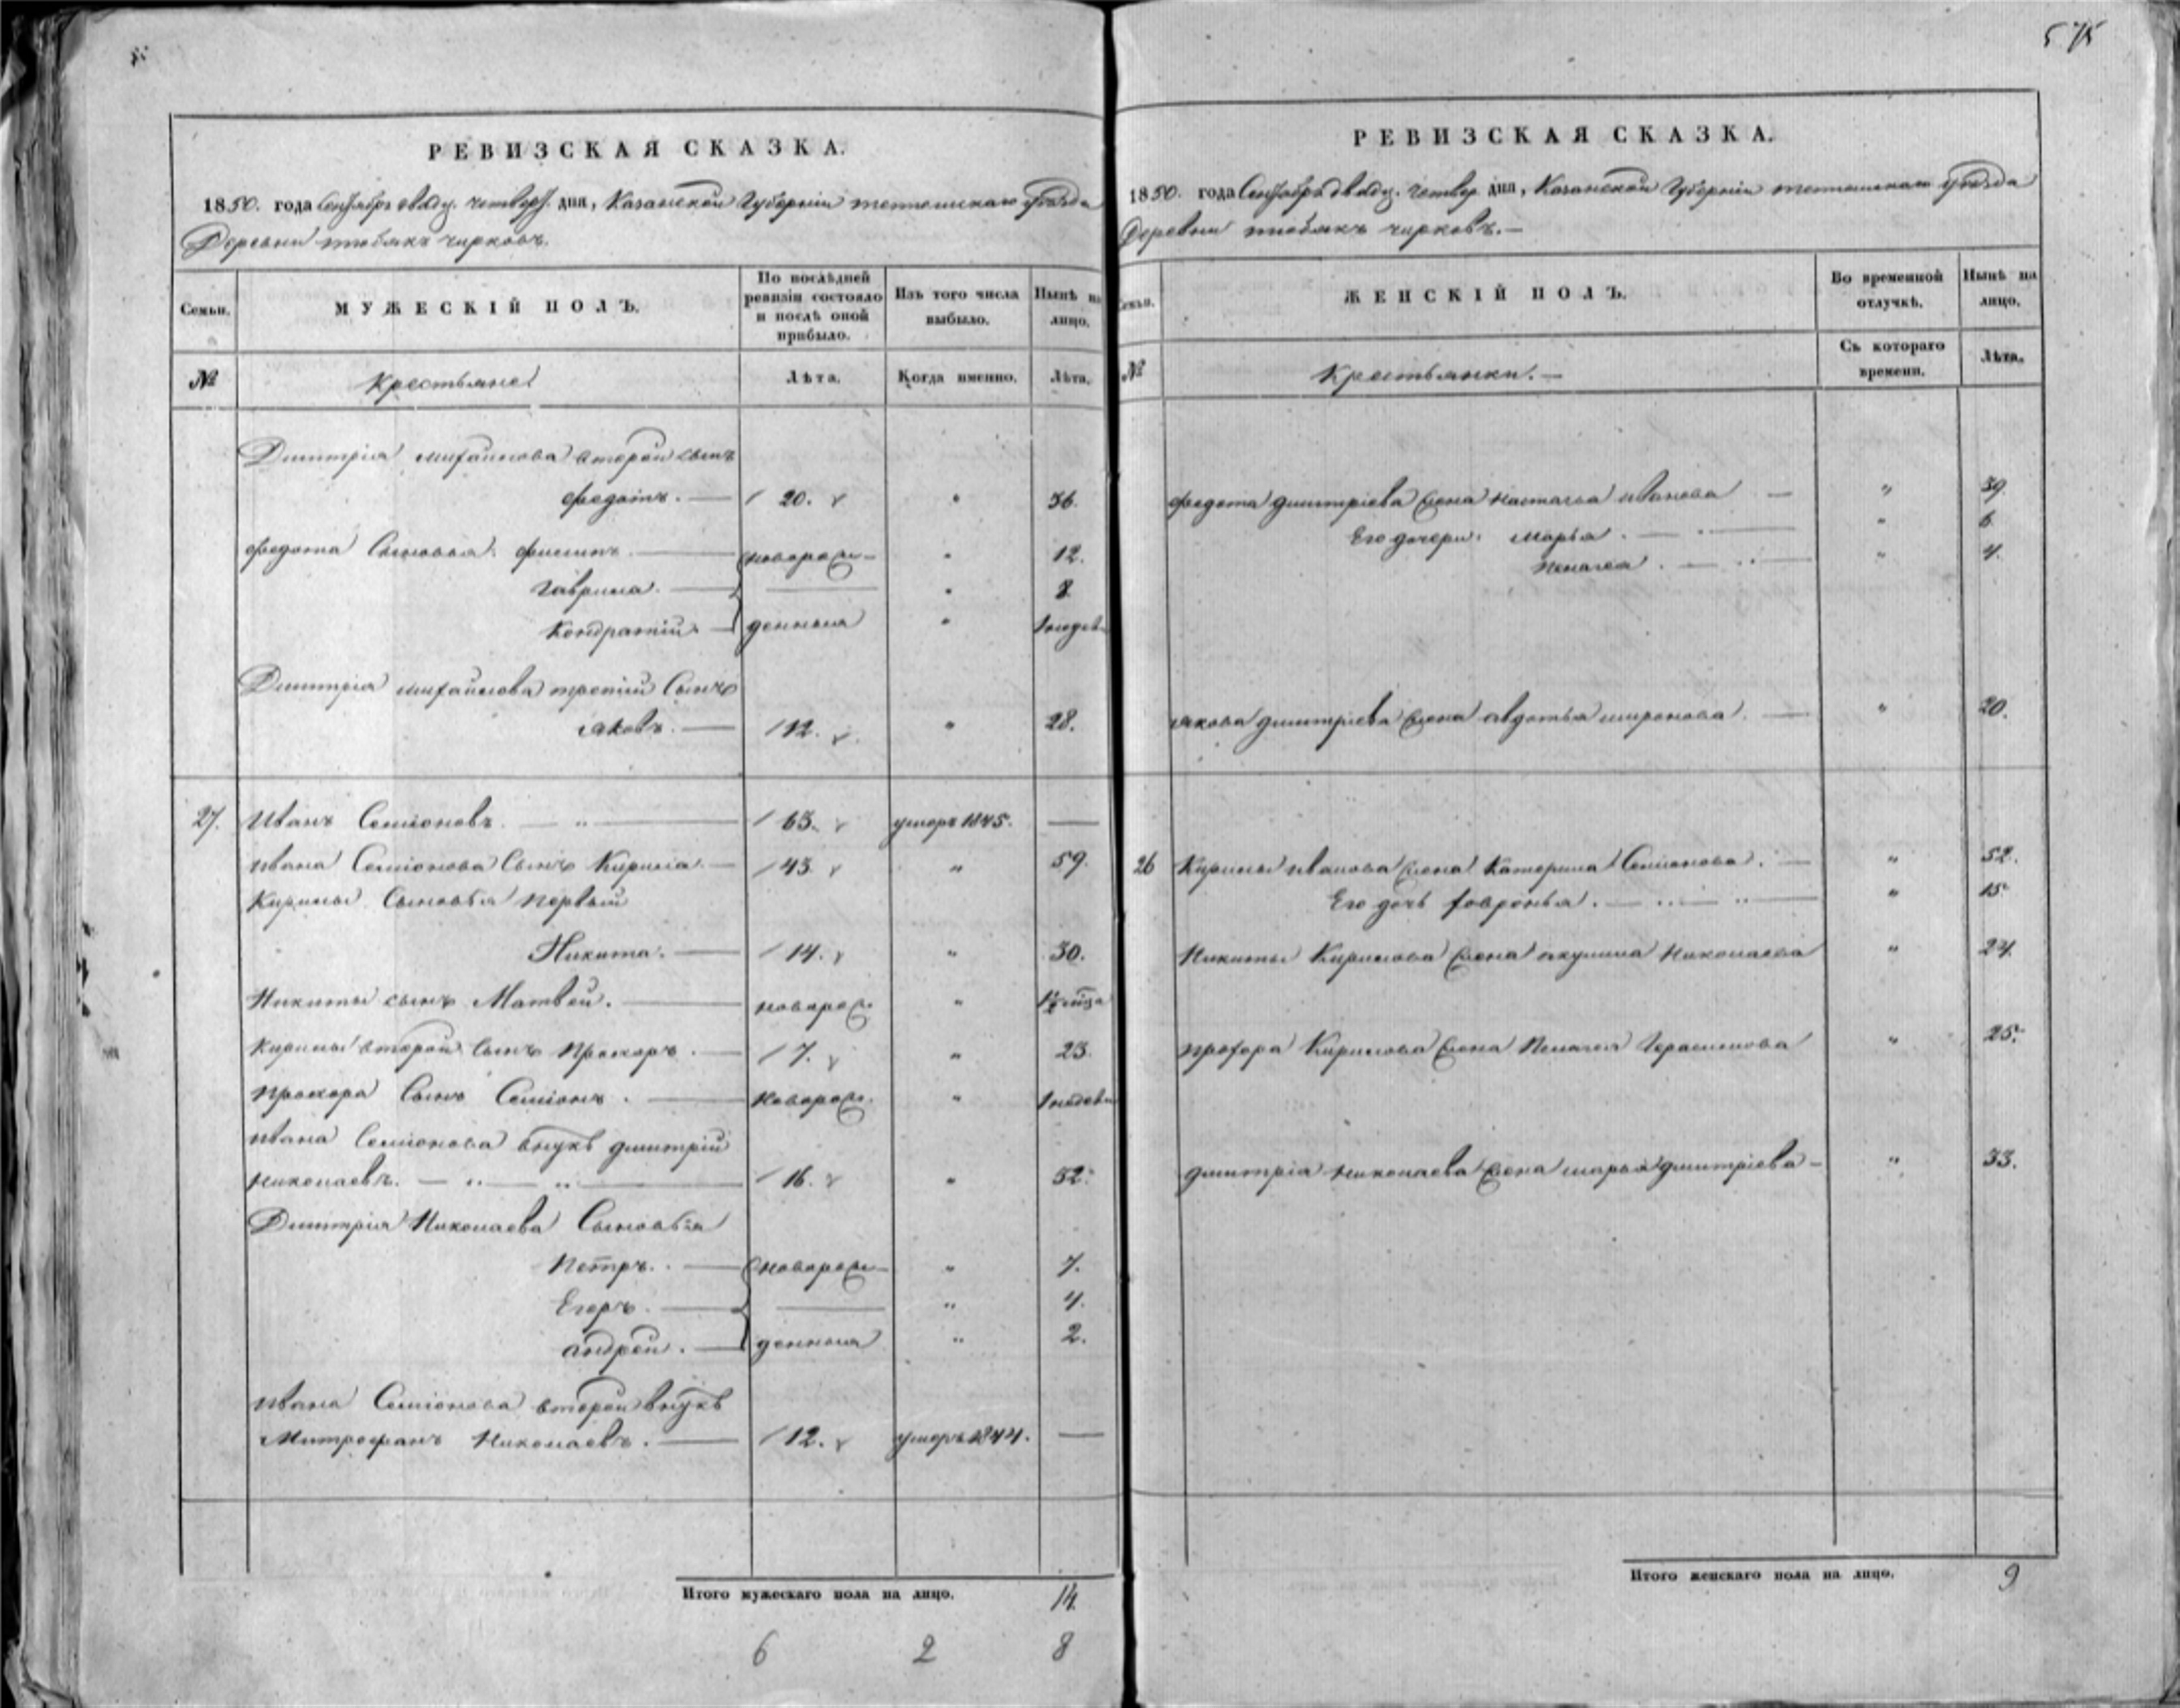 575
РЕВИЗСКАЯ СКАЗКА.
1850. года Сентября двадц. четверт. дня, Казанской Губерніи тетюшскаго уѣзда
Деревни тюбякъ чирковъ.
Семьи.
МУЖЕСКІЙ ПОЛЪ.
По послѣдней ревизіи состояло и послѣ оной прибыло.
Изъ того числа выбыло.
Нынѣ на лицо.
№
Крестьяне
Лѣта.
Когда именно.
Лѣта.
Дмитрія михайлова второй сынъ
федотъ. 20. " 36.
федота Сыновья: филипъ. новорож- " 12.
гаврила. " 8
Кондратій денныя " 1 недѣл
Дмитрія михайлова третій Сынъ
яковъ. 12. " 28.
27. Иванъ Семіоновъ. 63. умеръ 1845.
ивана Семіонова Сынъ Кирила. 43 " 59.
Кирилы Сыновья первый
Никита. 14. " 30.
Никиты сынъ Матвей. новорож. "
Кирилы второй Сынъ Прохоръ. 7. " 23.
прохора Сынъ Семіонъ. Новорож. " 1 недѣл
ивана Семіонова внукъ дмитрій
николаевъ. 16. " 32.
Дмитрія Николаева Сыновья
Петръ. новорож- " 7.
Егоръ. " 4.
андрей. денныя " 2.
ивана Семіонова второй внукъ
Митрофанъ Николаевъ. 12. умеръ 1844.
Итого мужескаго пола на лицо. 14.
6 2 8
РЕВИЗСКАЯ СКАЗКА.
1850. года Сентября двадц. четвер. дня, Казанской Губерніи тетюшскаго уѣзда
Деревни тюбякъ чирковъ.
Семьи.
ЖЕНСКІЙ ПОЛЪ.
Во временной отлучкѣ.
Нынѣ на лицо.
№
Крестьянки.
Съ котораго времени.
Лѣта.
федота дмитріева жена настасья иванова " 39.
Его дочери: марья. " 6.
Пелагея. " 4.
якова дмитріева жена авдотья миронова. " 20.
26 Кирилы иванова жена Катерина Семіонова. " 52.
Его дочь февронья. " 15.
Никиты Кирилова жена акулина Николаева " 24.
прохора Кирилова жена Пелагея Герасимова " 25.
дмитрія николаева жена марья дмитріева " 33.
Итого женскаго пола на лицо. 9